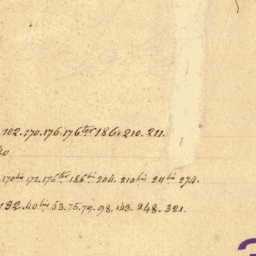 102. 170. 176. 176bis 186. 210. 211.
170bis 172. 176bis 186bis 204. 210bis 211bis 274.
192. 40bis 53. 75. 79. 98. 143. 248. 321.